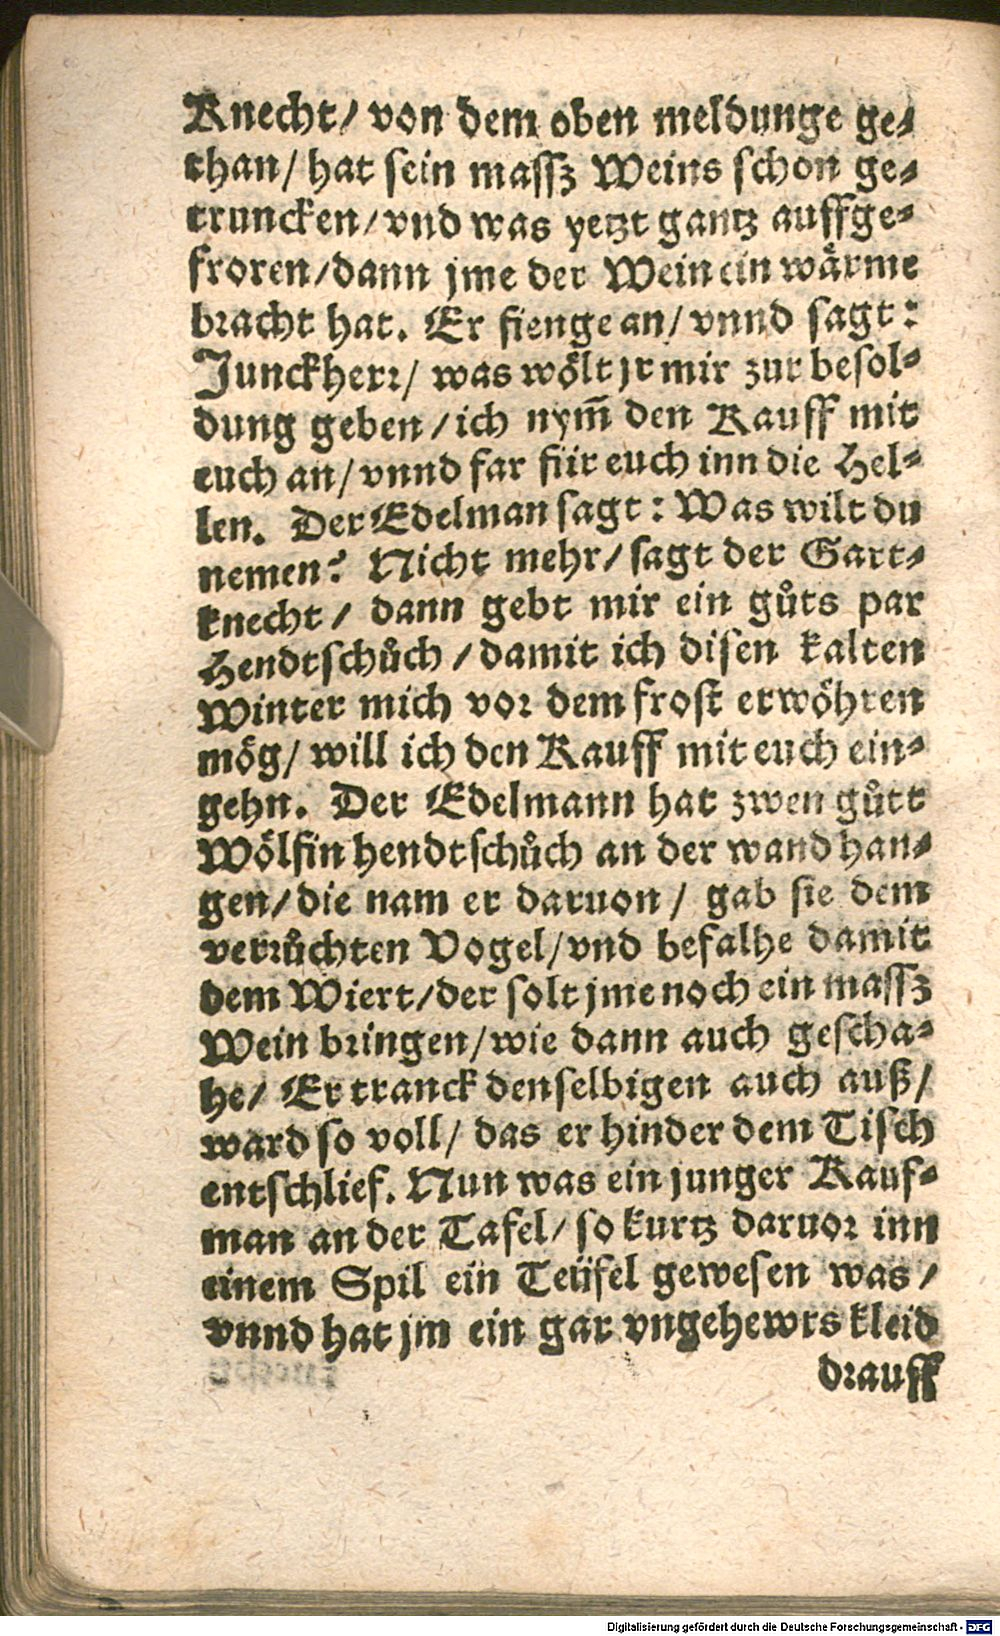 Knecht/ von dem oben meldunge ge⸗
than/ hat sein massz Weins schon ge⸗
truncken/ vnd was yetzt gantz auffge⸗
froren/ dann jme der Wein ein wärme
bracht hat. Er fienge an/ vnnd sagt:
Junckherr/ was wölt jr mir zur besol⸗
dung geben/ ich nym̄ den Kauff mit
euch an/ vnnd far für euch inn die Hel⸗
len. Der Edelman sagt: Was wilt du
nemen? Nicht mehr/ sagt der Gart⸗
knecht/ dann gebt mir ein gůts par
Hendtschůch/ damit ich disen kalten
Winter mich vor dem frost erwöhren
mög/ will ich den Kauff mit euch ein⸗
gehn. Der Edelmann hat zwen gůtt
Wölfin hendtschůch an der wand han⸗
gen/ die nam er daruon/ gab sie dem
verrůchten Vogel/ vnd befalhe damit
dem Wiert/ der solt jme noch ein massz
Wein bringen/ wie dann auch gescha⸗
he/ Er tranck denselbigen auch auß/
ward so voll/ das er hinder dem Tisch
entschlief. Nun was ein junger Kauf⸗
man an der Tafel/ so kurtz daruor inn
einem Spil ein Teüfel gewesen was/
vnnd hat jm ein gar vngehewrs kleid
drauff
Digitalisierung gefördert durch die Deutsche Forschungsgemeinschaft - DFG